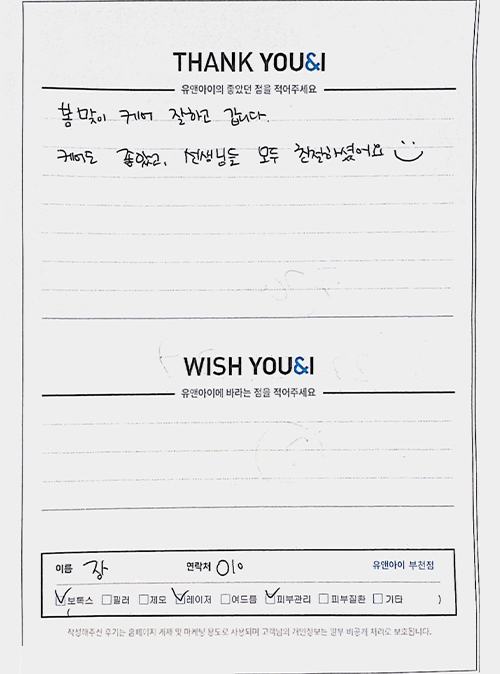 THANK YOU&I
유앤아이의 좋았던 점을 적어주세요
봄맞이 케어 잘하고 갑니다.
케어도 좋았고, 선생님들 모두 친절하셨어요
WISH YOU&I
유앤아이에 바라는 점을 적어주세요
이름 장 연락처 010 유앤아이 부천점
보톡스 필러 제모 레이저 여드름 피부관리 피부질환 기타
( )
작성해주신 후기는 홈페이지 게재 및 마케팅 용도로 사용되며 고객님의 개인정보는 일부 비공개 처리로 보호됩니다.